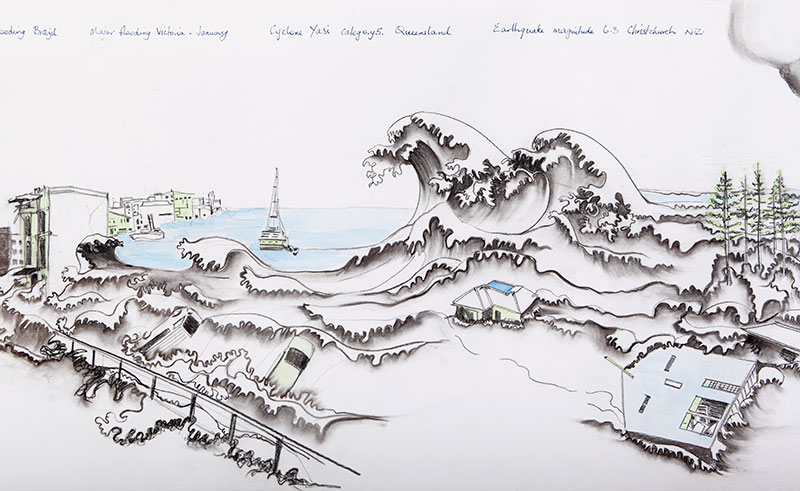 ooding Brazil
Major flooding Victoria - January
Cyclone Yasi category 5. Queensland
Earthquake magnitude 6.3 Christchurch NZ.